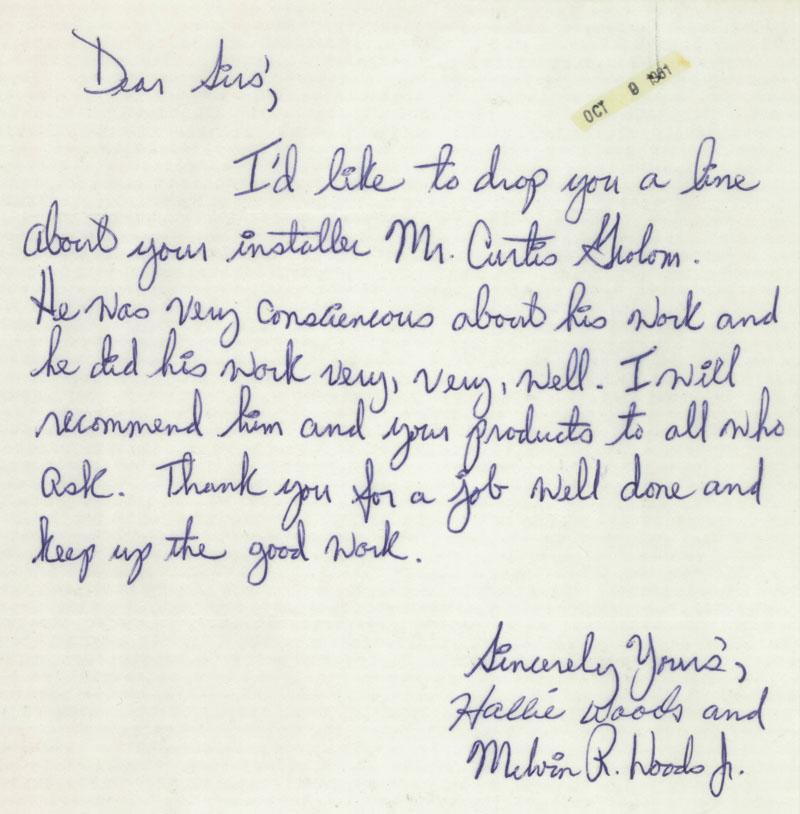 Dear Sirs',
OCT 9 1981
I'd like to drop you a line
about your installer Mr. Curtis
He was very consciencous about his work and
he did his work very, very, well. I will
recommend him and your products to all who
ask. Thank you for a job well done and
keep up the good work.
Sincerely Yours',
Hallie Woods and
Melvin R. Woods Jr.